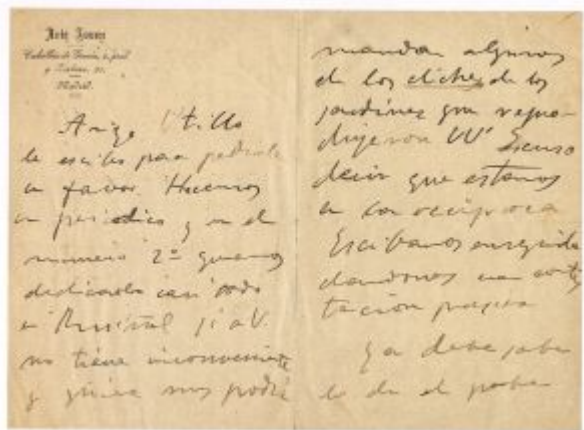 Caballero de Gracia,
Madrid
Amigo Utrillo
le escribo para pedirle
un favor. Hacemos
un periodico y en el
numero 2º queremos
dedicarlo casi todo
a Rusiñol si a V.
no tiene inconveniente
y quiere nos podría
mandar algunos
de los clichés de los
jardines que repro-
dujeron VV. Escuso
decir que estamos
a la recíproca
Escribanos enseguida
dandonos una contes-
tación
Ya debe saber
lo de el pobre